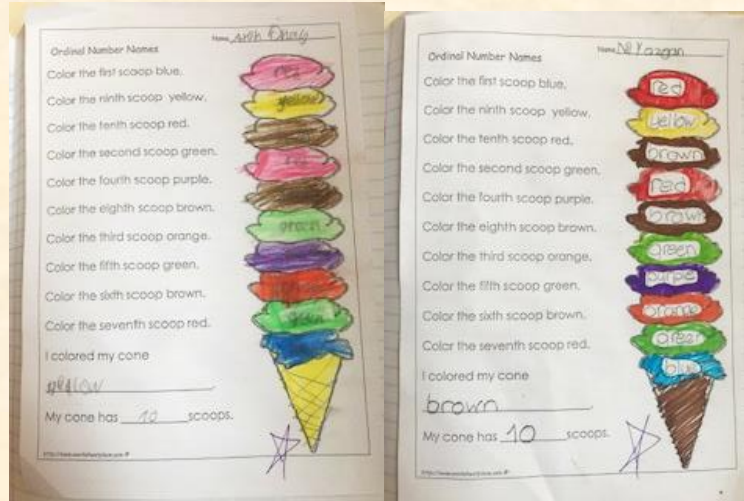 Ordinal Number Names
Name
Color the first scoop blue.
Color the ninth scoop yellow.
Color the tenth scoop red.
Color the second scoop green.
Color the fourth scoop purple.
Color the eighth scoop brown.
Color the third scoop orange.
Color the fifth scoop green.
Color the sixth scoop brown.
Color the seventh scoop red.
I colored my cone
yellow
My cone has 10 scoops.
red
yellow
green
Ordinal Number Names
Name
Color the first scoop blue.
Color the ninth scoop yellow.
Color the tenth scoop red.
Color the second scoop green.
Color the fourth scoop purple.
Color the eighth scoop brown.
Color the third scoop orange.
Color the fifth scoop green.
Color the sixth scoop brown.
Color the seventh scoop red.
I colored my cone
brown
My cone has 10 scoops.
red
yellow
brown
red
brown
green
purple
orange
green
blue